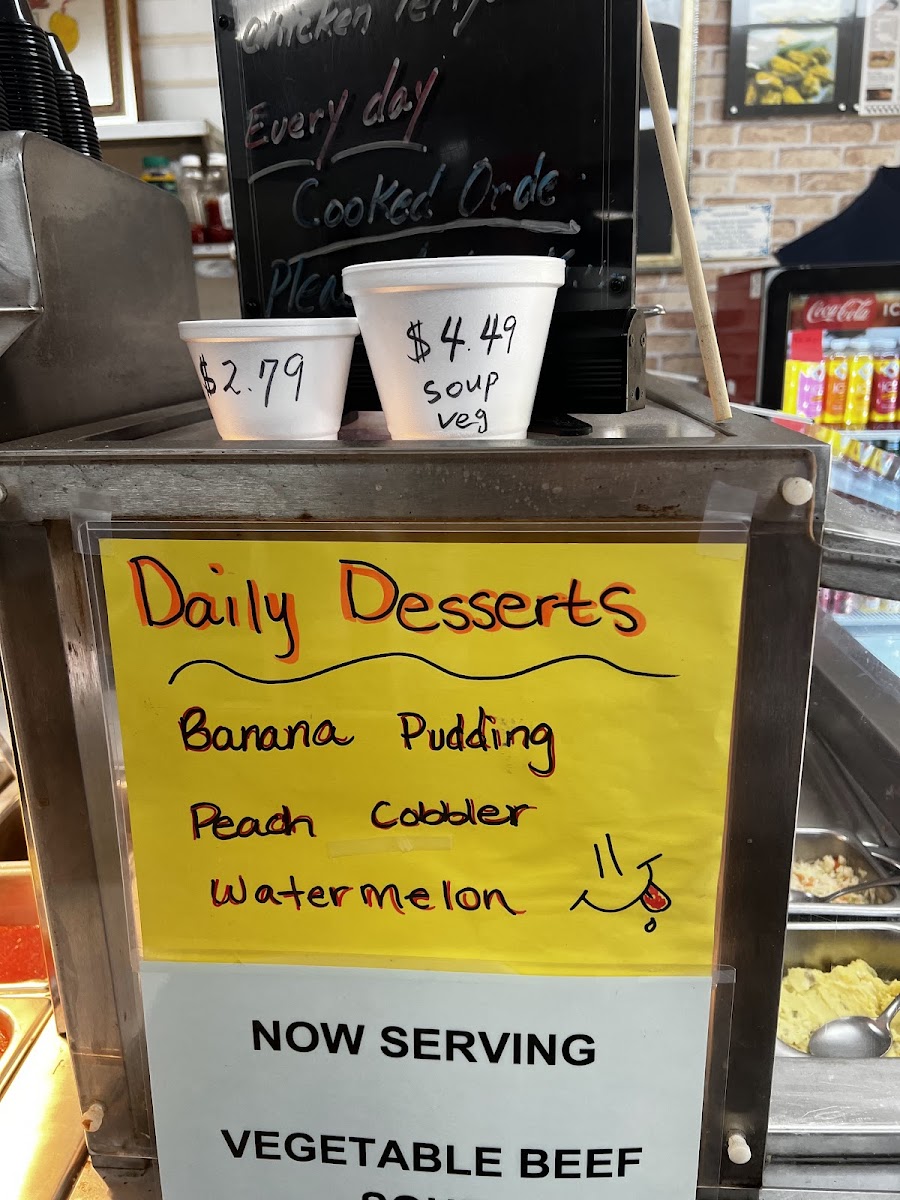 Chicken Teriy
Every day
Cooked Orde
Plea
$2.79
$4.49
soup
veg
Coca-Cola
IC
Daily Desserts
Banana Pudding
Peach Cobbler
Watermelon
NOW SERVING
VEGETABLE BEEF
SOU